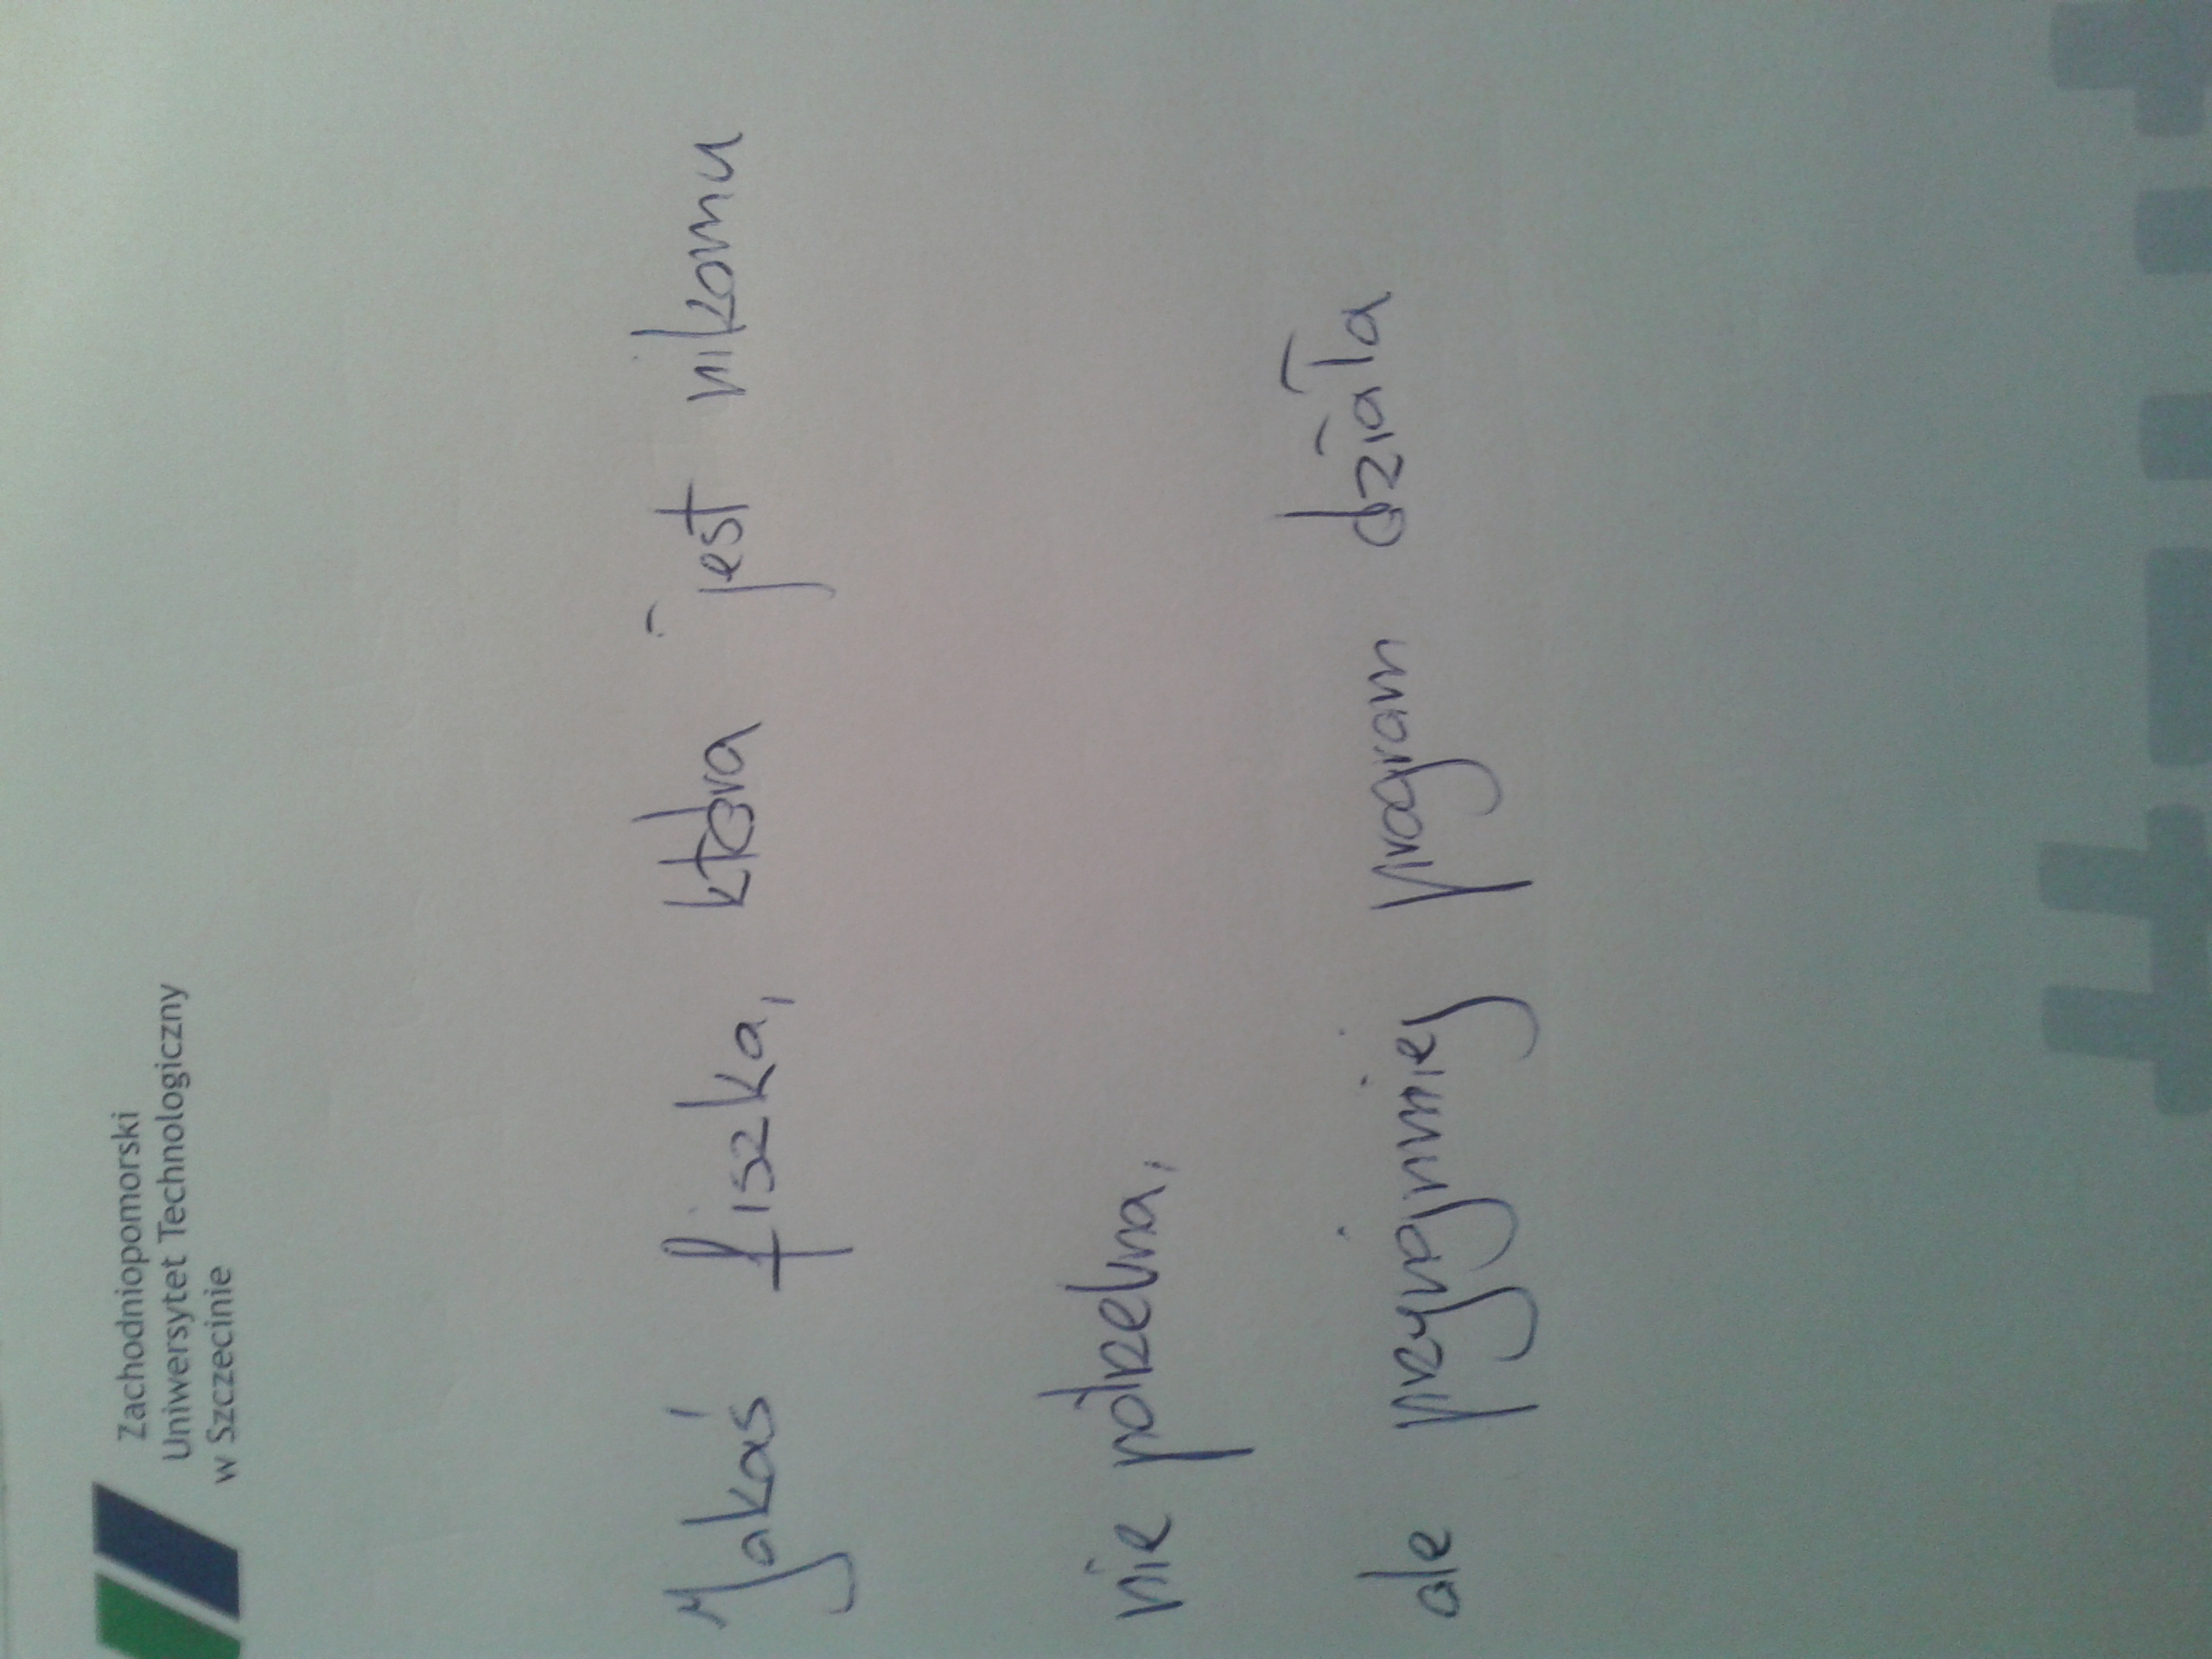 Zachodniopomorski
Uniwersytet Technologiczny
w Szczecinie
Jakaś fiszka, która jest nikomu
nie potrzebna,
ale przynajmniej program działa